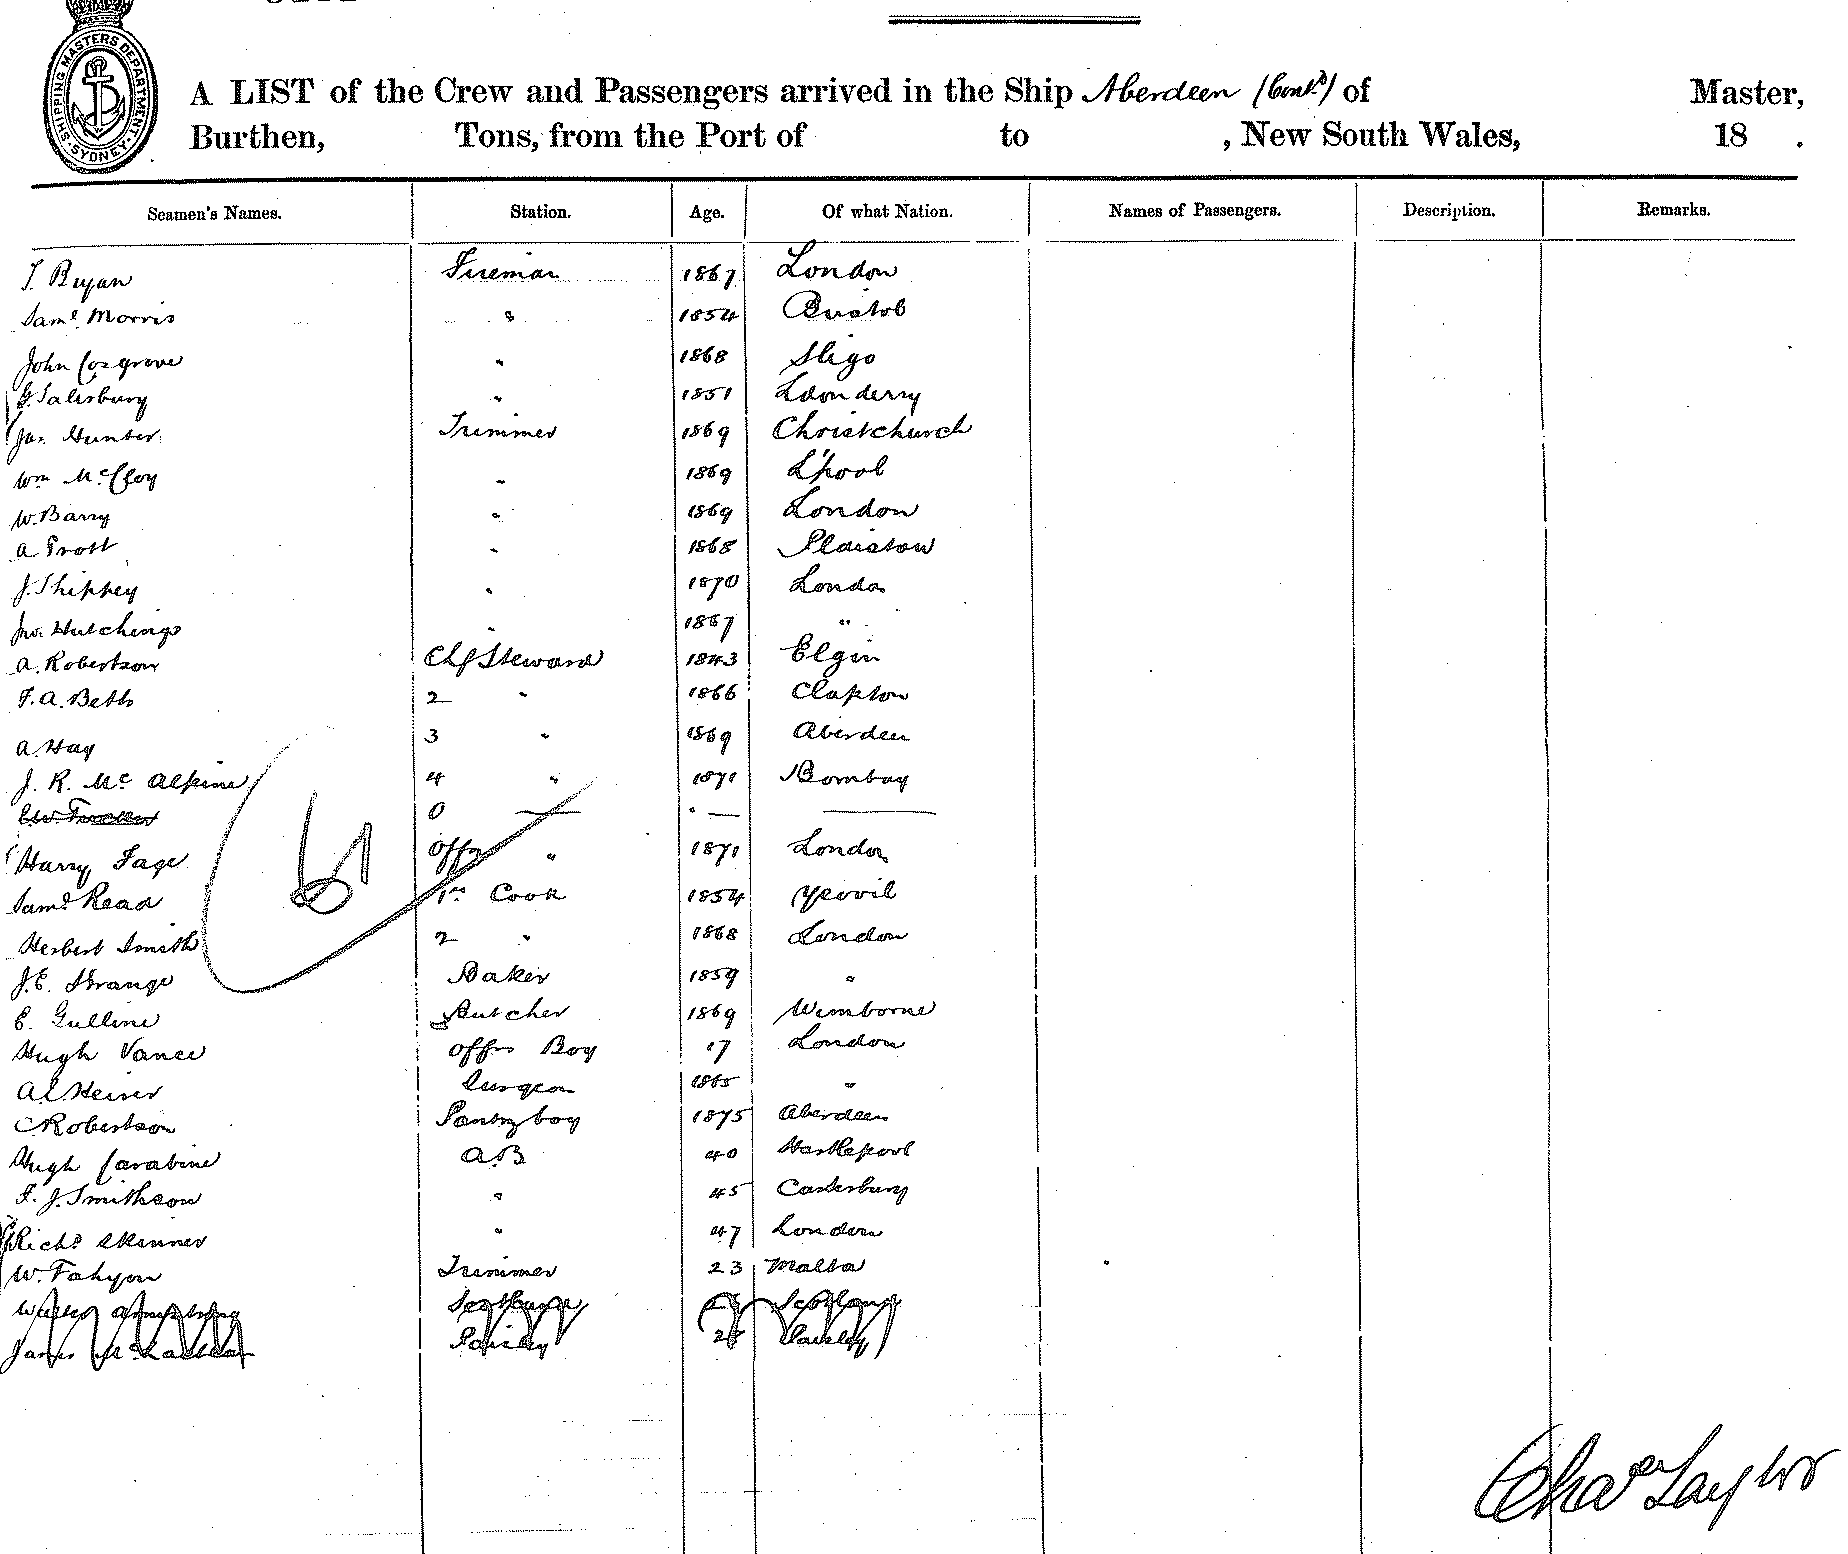 SHIPPING MASTERS DEPARTMENT · SYDNEY ·
A LIST of the Crew and Passengers arrived in the Ship Aberdeen (Contd) of Master,
Burthen, Tons, from the Port of to , New South Wales, 18 .
Seamen's Names. Station. Age. Of what Nation. Names of Passengers. Description. Remarks.
T. Bryan Fireman 1867 London
Saml Morris " 1854 Bristol
John Cosgrove " 1868 Sligo
G. Salisbury " 1851 Ldonderry
Jas. Hunter Trimmer 1869 Christchurch
Wm McCloy " 1869 L'pool
W. Barry " 1869 London
A. Trott " 1868 Plaistow
J. Shippey " 1870 London
Jno. Hutchings " 1867 "
A. Robertson Chf Steward 1843 Elgin
F. A. Betts 2 " 1866 Clapton
A. Hay 3 " 1869 Aberdeen
J. R. McAlpine 4 " 1871 Bombay
0 — — —
Harry Page Offrs " 1871 London
Saml Read 1st Cook 1854 Yeovil
Herbert Smith 2 " 1868 London
J. E. Strange Baker 1859 "
E. Gulline Butcher 1869 Wimborne
Hugh Vance Offrs Boy 17 London
Surgeon 1865 "
C Robertson Pantryboy 1875 Aberdeen
Hugh Carabine A.B 40 Hartlepool
F. J. Smithson " 45 Canterbury
Richd Skinner " 47 London
W. Fahyon Trimmer 23 Malta
Armstrong Scotland
James Paisley 28 Paisley
61
Chas Taylor